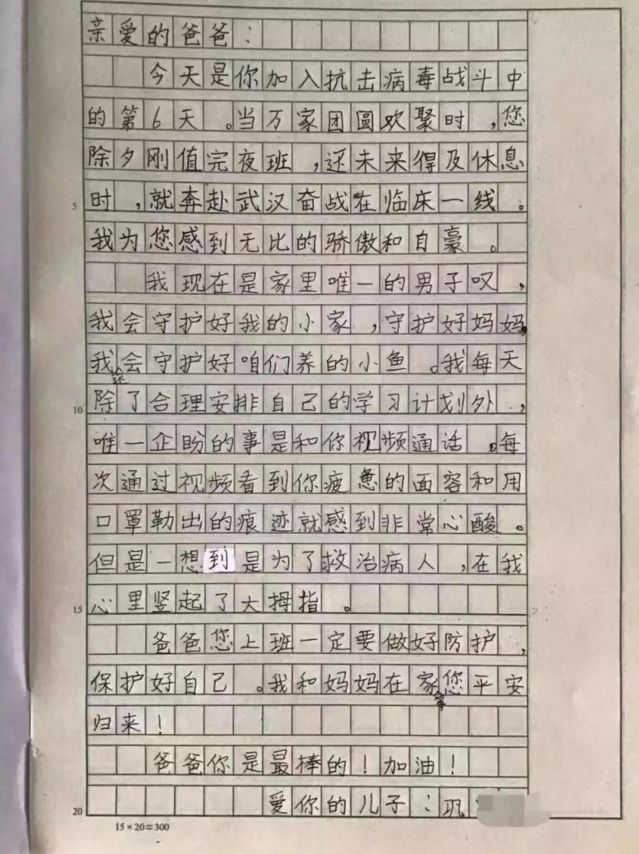 亲爱的爸爸：
今天是你加入抗击病毒战斗中
的第6天。当万家团圆欢聚时，您
除夕刚值完夜班，还未来得及休息
5
时，就奔赴武汉奋战在临床一线。
我为您感到无比的骄傲和自豪。
我现在是家里唯一的男子叹，
我会守护好我的小家，守护好妈妈，
我还会守护好咱们养的小鱼。我每天
10
除了合理安排自己的学习计划外，
唯一企盼的事是和你视频通话。每
次通过视频看到你疲惫的面容和用
口罩勒出的痕迹就感到非常心酸。
但是一想到是为了救治病人，在我
15
心里竖起了大拇指。
爸爸您上班一定要做好防护，
保护好自己。我和妈妈在家等您平安
归来！
爸爸你是最棒的！加油！
20
爱你的儿子：巩
15×20=300